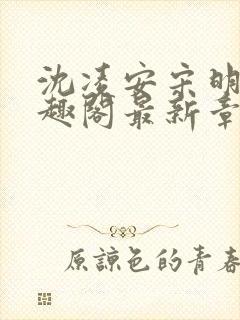 沈凌安宋明
趣阁最新章
原諒色的青春